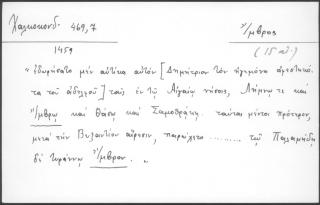 Χαλκοκονδ. 469,7 Ἴμβρος
1459 (15 αἰ.)
"ἐδωρήσατο μὲν αὐτίκα αὐτὸν [Δημήτριον τὸν ἡγεμόνα
τα τοῦ ἀδελφοῦ] τοὺς ἐν τῷ Αἰγαίῳ νήσοις, Λήμνῳ τε καὶ
Ἴμβρῳ καὶ Θάσῳ καὶ Σαμοθρᾴκῃ. ταύτας μέντοι πρότερον,
μετὰ τὴν Βυζαντίου αἵρεσιν, παρέσχετο .......... τῷ Παλαμήδῃ
δὲ τυράννῳ Ἴμβρον. "